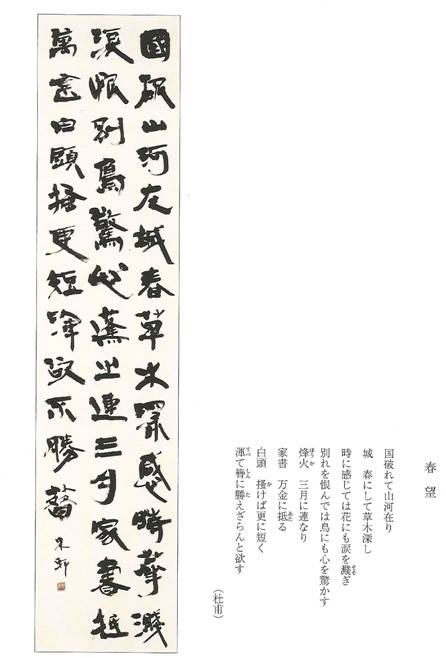 春望
国破れて山河在り
城 春にして草木深し
時に感じては花にも涙を濺ぎ
別れを恨んでは鳥にも心を驚かす
烽火 三月に連なり
家書 万金に抵る
白頭 掻けば更に短く
渾て簪に勝えざらんと欲す
(杜甫)
國破山河在城春草木深感時華濺
淚恨別鳥驚心火連三月家書抵
萬金白頭搔更短渾欲不勝簪